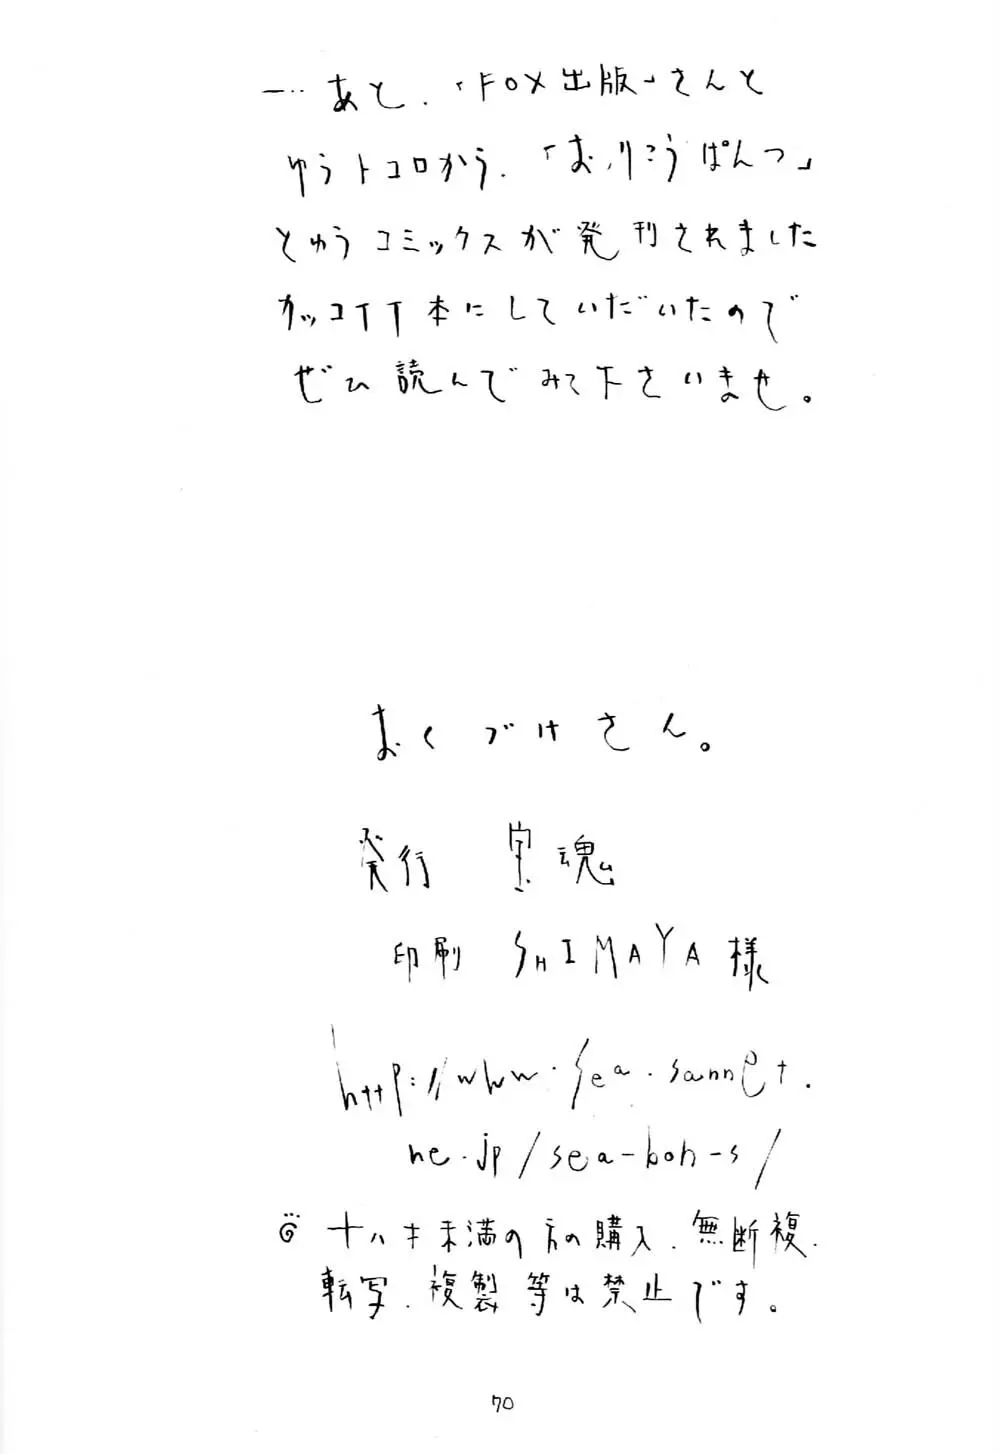 …あと、「FOX出版」さんと
ゆうトコロから、「おりこうぱんつ」
とゆうコミックスが発刊されました
カッコイイ本にしていだいたので
ぜひ読んでみて下さいませ。
おくづけさん。
発行 宝魂
印刷 SHIMAYA様
http://www.sea.sannet.
ne.jp/sea-bon-s/
十八才未満の方の購入、無断複
転写、複製等は禁止です。
70